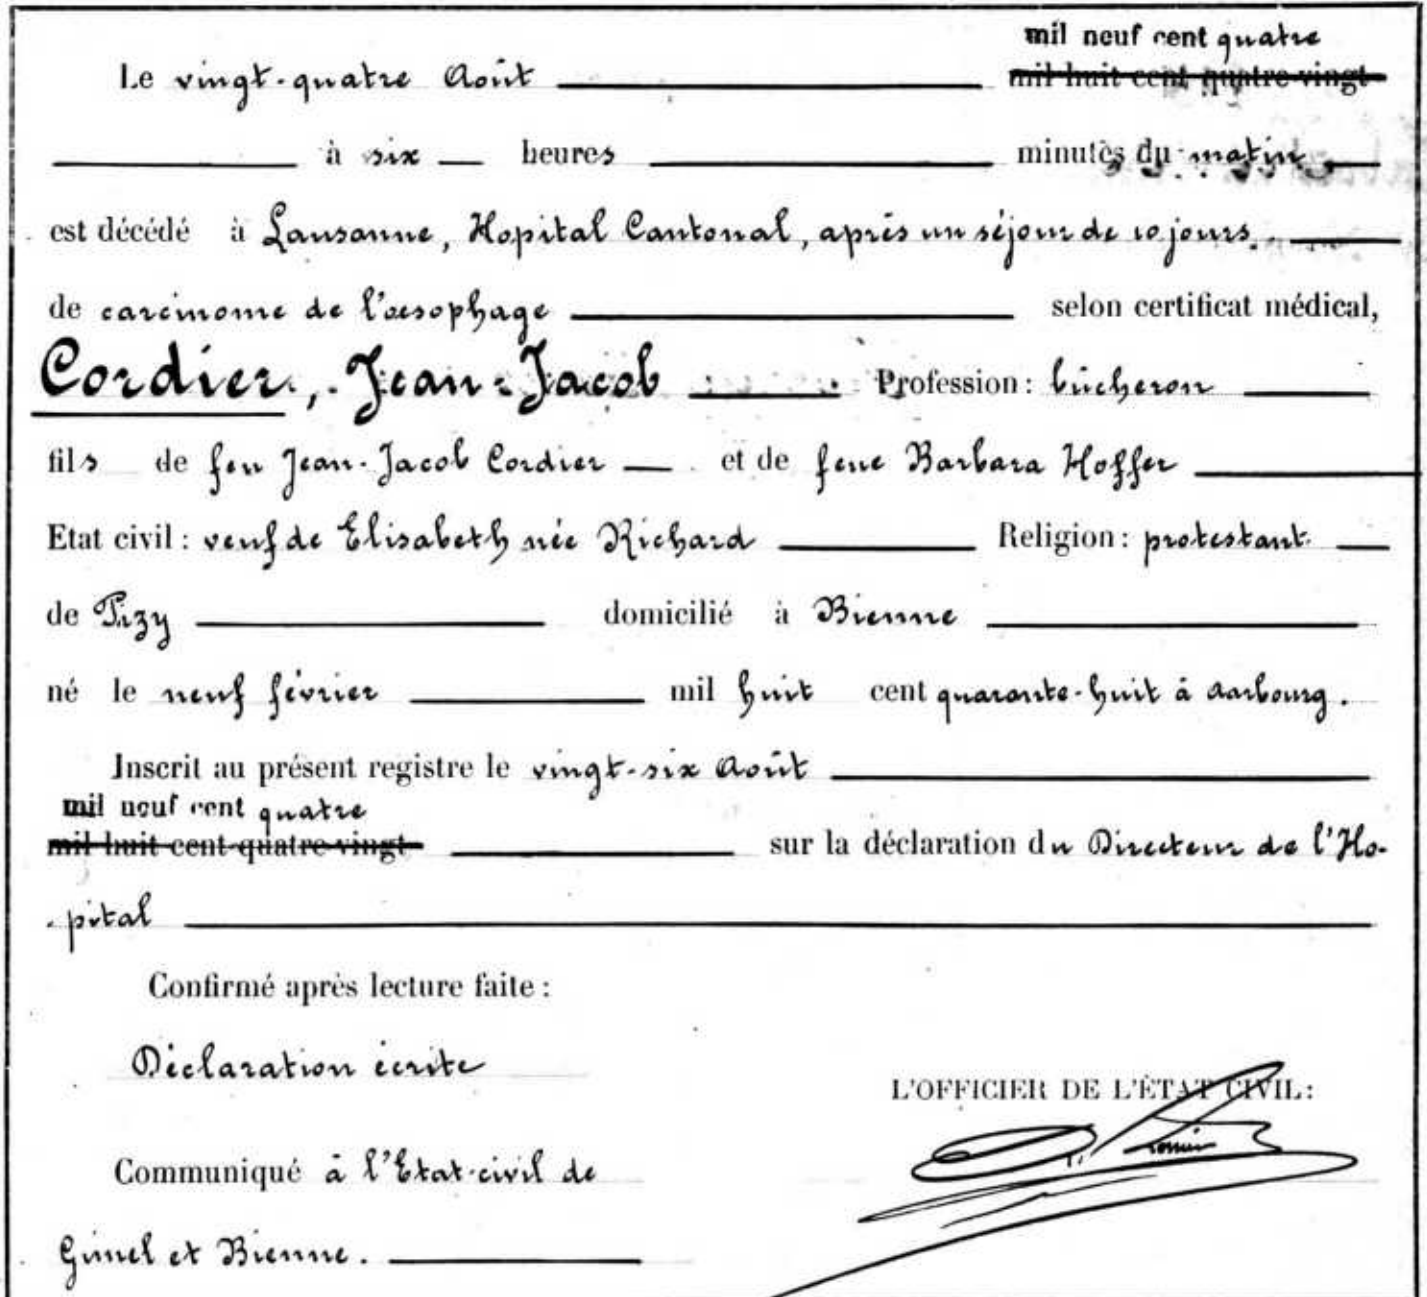 mil neuf cent quatre
Le vingt-quatre Août mil huit cent quatre-vingt
à six heures minutes du matin
est décédé à Lausanne, Hopital Cantonal, après un séjour de 10 jours.
de carcinome de l'œsophage selon certificat médical,
Cordier, Jean-Jacob Profession: bûcheron
fils de feu Jean-Jacob Cordier et de feue Barbara Hoffer
Etat civil: veuf de Elisabeth née Richard Religion: protestant.
de Pizy domicilié à Bienne
né le neuf février mil huit cent quarante-huit à Aarbourg.
Inscrit au présent registre le vingt-six Août
mil neuf cent quatre
mil huit cent quatre-vingt sur la déclaration du Directeur de l'Ho-
-pital
Confirmé après lecture faite:
Déclaration écrite
L'OFFICIER DE L'ÉTAT CIVIL:
Communiqué à l'Etat-civil de
Gimel et Bienne.